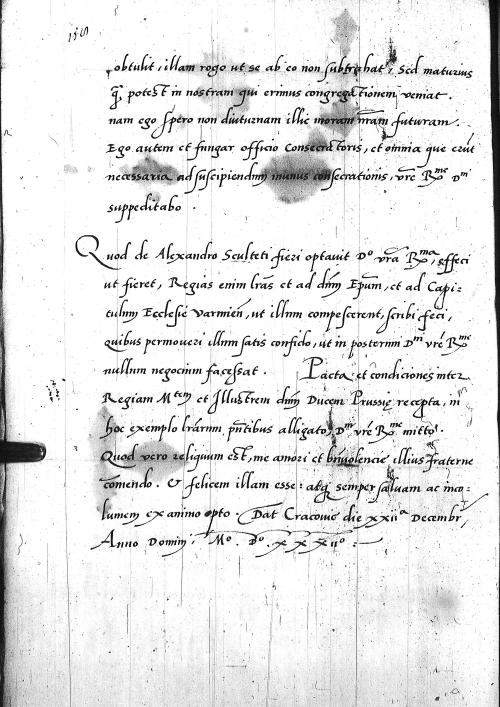 obtulit, illam rogo ut se ab eo non subtrahat, Sed maturius
q̃ potest in nostram qui erimus congregationem veniat.
nam ego spero non diuturnam illic moram nr̃am futuram.
Ego autem et fungar officio Consecratoris, et omnia que erūt
necessaria ad suscipiendum munus consecrationis, vr̃e Rme Dni
suppeditabo.
Quod de Alexandro Sculteti fieri optavit Do vr̃a Rma, effeci
ut fieret, Regias enim lr̃as et ad dnm Epum, et ad Capi-
tulum Ecclesie Varmien, ut illum compescerent, scribi feci,
quibus permoveri illum satis confido, ut in posterum Dni vr̃e Rme
nullum negocium facessat. Pacta et condiciones inter
Regiam Mtem et Illustrem dnm Ducem Prussie recepta, in
hoc exemplo lr̃arum pñtibus alligato, Dni vr̃e Rme mitto.
Quod vero reliquum est, me amori et bnivolencie illius fraterne
comendo. & felicem illam esse: atq semper salvam ac inco-
lumem ex animo opto. Dat Cracovie die xxiia Decembr,
Anno Domini Mo. Do. xxxiio.